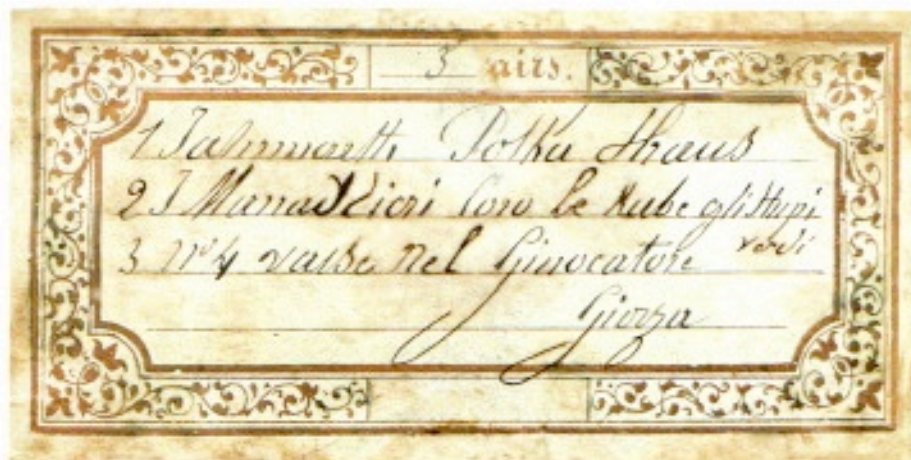 3 airs.
1 Polka Straus
2 I Masnadieri Coro le Rube gli Stupi
verdi
3 Nº 4 valse nel Giuocatore
Giorza